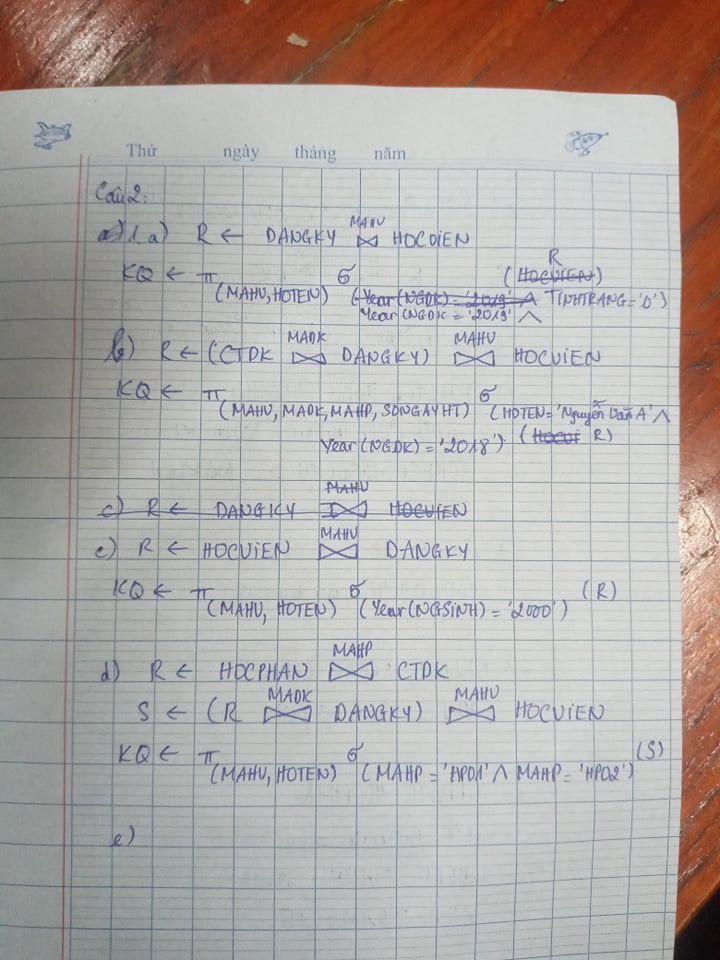 Thứ ngày tháng năm
Câu 2:
a) 1. a) R ← DANGKY ⋈ MAHV HOCVIEN
KQ ← π (MAHV, HOTEN) σ (Year(NGDK) = '2019' ∧ TINHTRANG = '0') (HOCVIEN) R
Year(NGDK) = '2019' ∧
b) R ← (CTDK ⋈ MADK DANGKY) ⋈ MAHV HOCVIEN
KQ ← π (MAHV, MADK, MAHP, SONGAYHT) σ (HOTEN = 'Nguyễn Văn A' ∧
Year(NGDK) = '2018') (HOCVI R)
c) R ← DANGKY ⋈ MAHV HOCVIEN
c) R ← HOCVIEN ⋈ MAHV DANGKY
KQ ← π (MAHV, HOTEN) σ (Year(NGSINH) = '2000') (R)
d) R ← HOCPHAN ⋈ MAHP CTDK
S ← (R ⋈ MADK DANGKY) ⋈ MAHV HOCVIEN
KQ ← π (MAHV, HOTEN) σ (MAHP = 'HP01' ∧ MAHP = 'HP02') (S)
e)